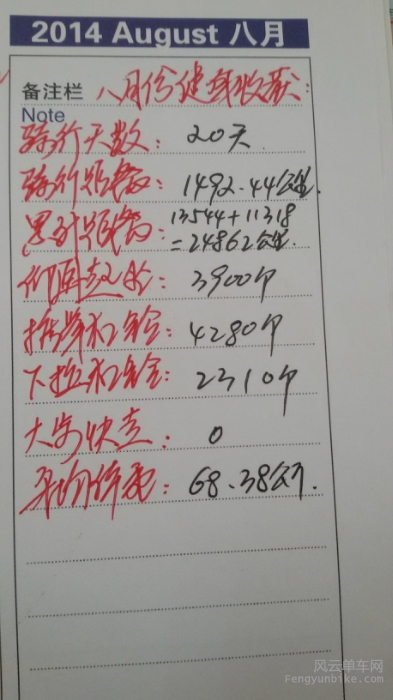 2014 August 八月
备注栏 八月份健身收获:
Note
骑行天数: 20天.
骑行总数: 1492.44公里.
累计总数: 13544+11318
=24862公里.
仰卧起坐: 3900个
推举杠铃: 4280个
下拉杠铃: 2310个
大步快走: 0
平均体重: 68.38公斤.
风云单车网
Fengyunbike.com